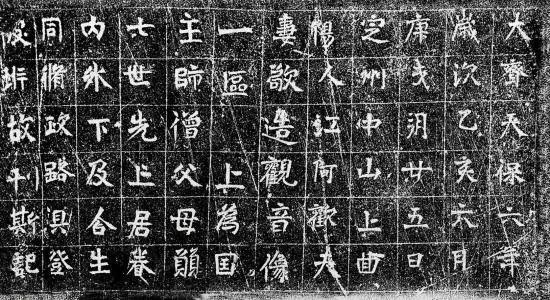 大齊天保六年
歲次乙亥六月
庚戌朔廿五日
定州中山上曲
楊人江阿歡夫
妻歌造觀音像
一區 上為国
主師僧父母願
七世先亡居眷
内外下及合生
同脩政路俱登
彼岸故刊斯記